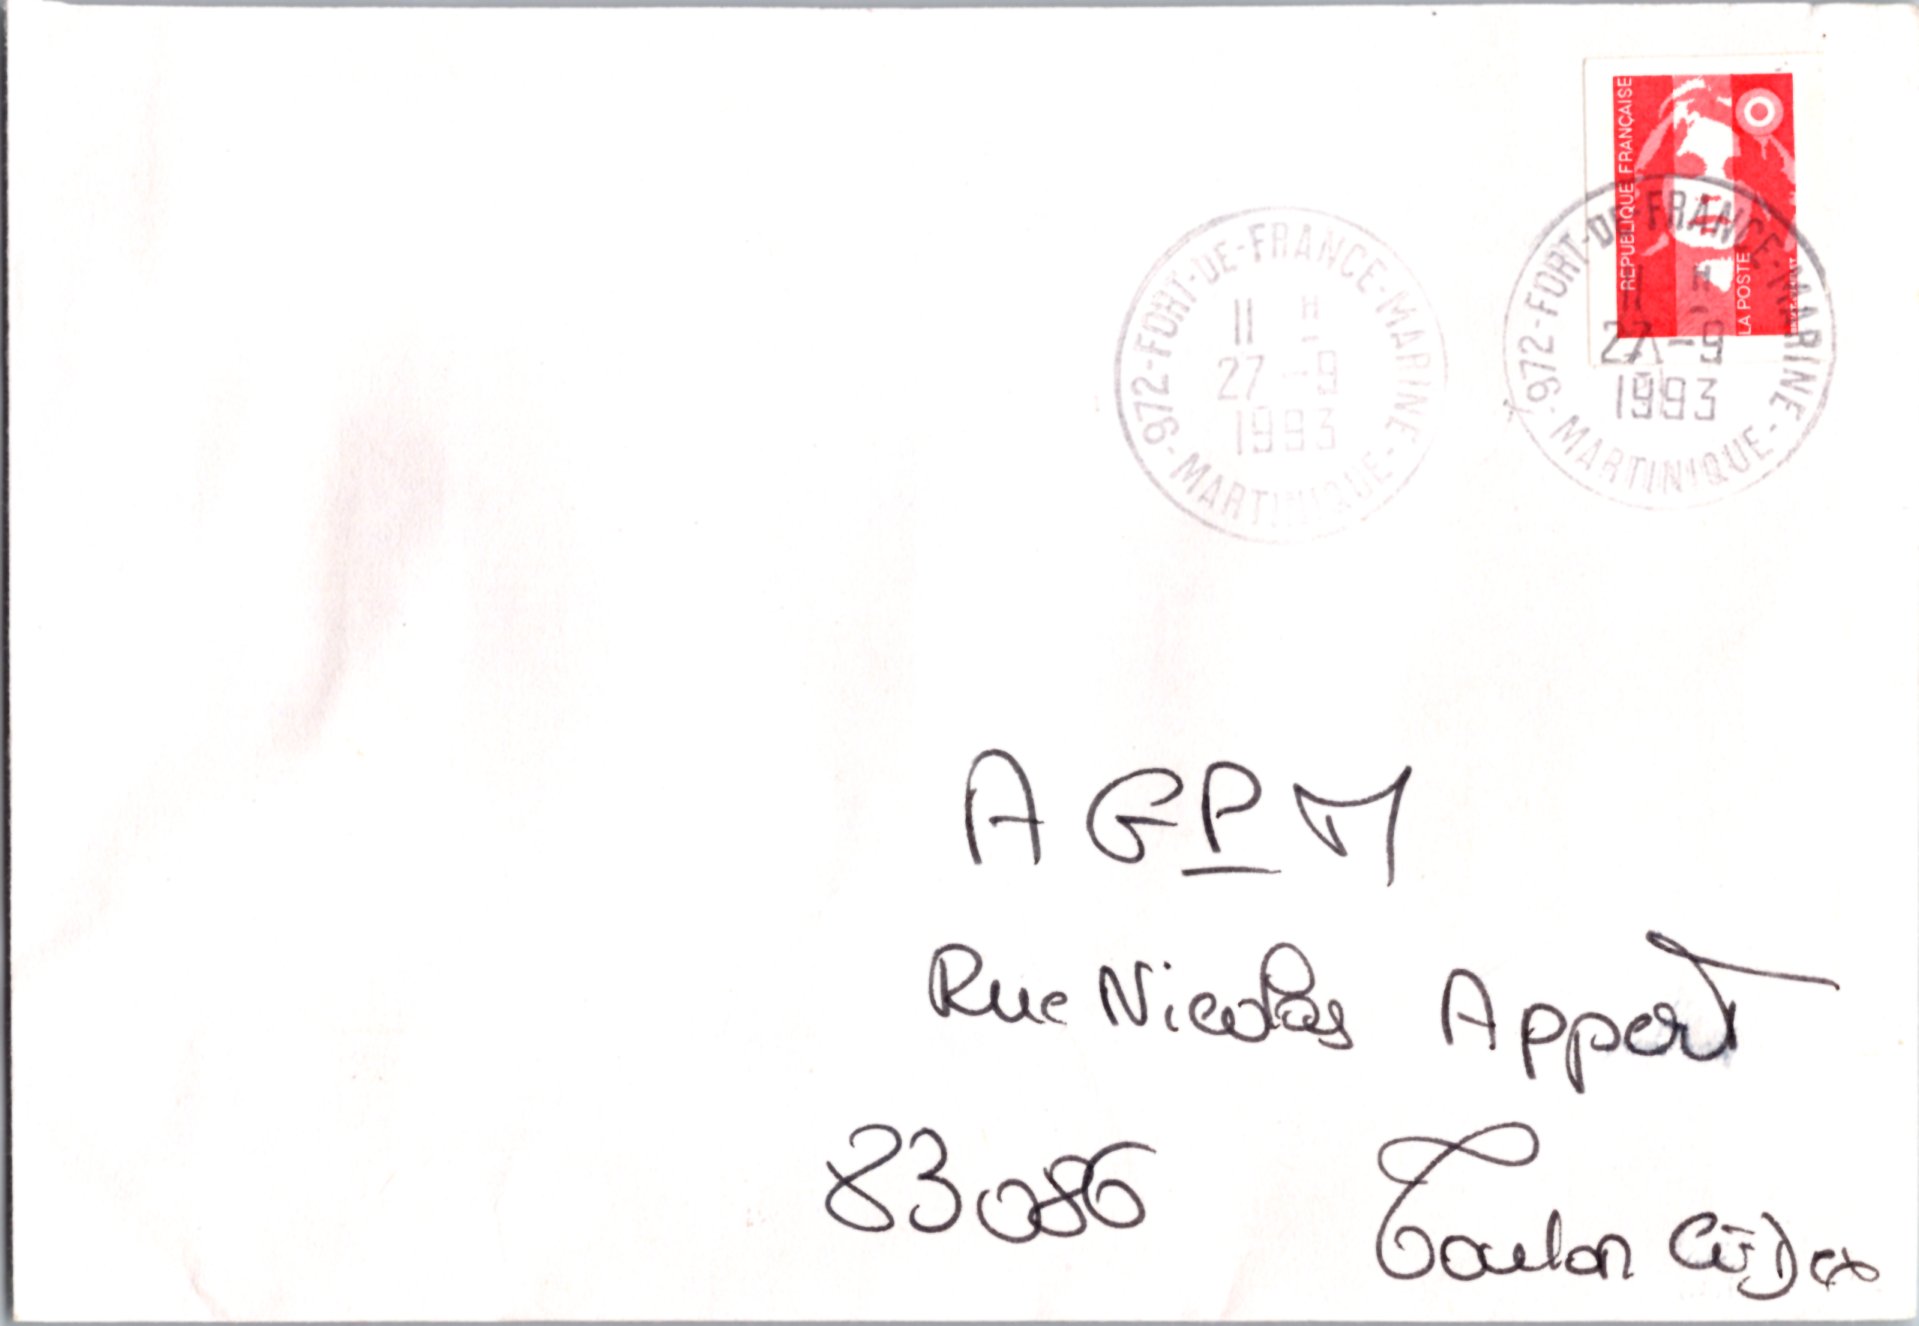 RÉPUBLIQUE FRANÇAISE
LA POSTE
972-FORT-DE-FRANCE-MARINE-
-MARTINIQUE-
11 H
27 -9
1993
972-FORT-DE-FRANCE-MARINE-
-MARTINIQUE-
11 H
27 -9
1993
AGPM
Rue Nicolas Appert
83086 Toulon CéDex